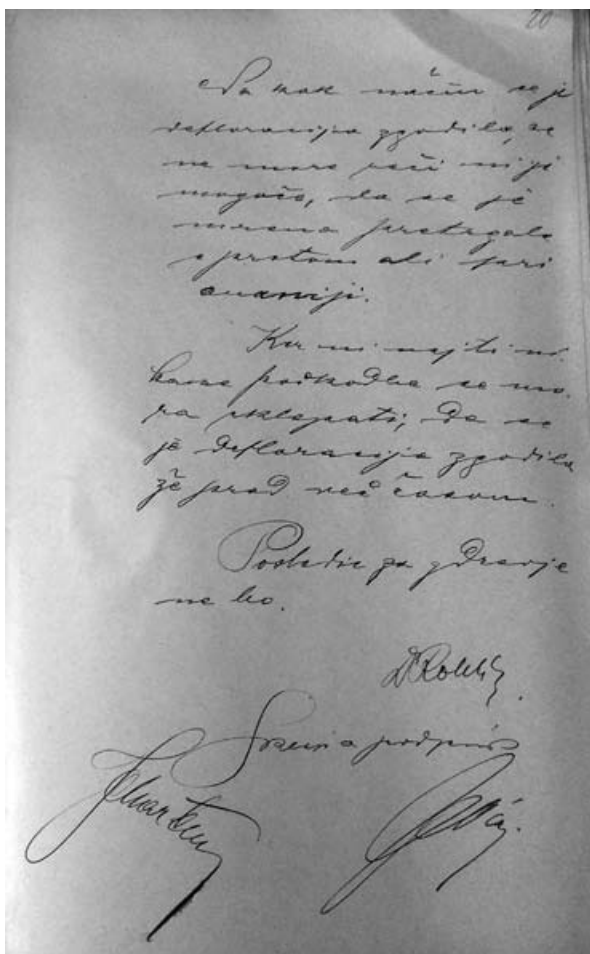 20
Na kak način se je
defloracija zgodila, se
ne more reči in je
mogoče, da se je
mrena pretrgala
s prstom ali pri
onaniji.
Ker ni najti ni-
kake poškodbe se mo-
ra sklepati, da se
je defloracija zgodila
že pred več časom.
Posledic za zdravje
ne bo.
Dr
Sklenjeno podpis